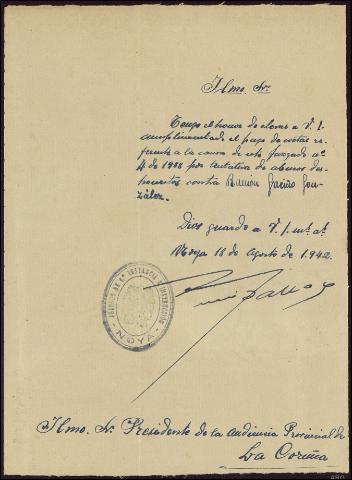 Ilmo. Sr.
Tengo el honor de elevar a V. I.
cumplimentado el pago de costas re-
ferente a la causa de este juzgado nº
4 de 1938 por tentativa de abusos des-
honestos contra Ramon Gon-
zález.
Dios guarde a V. I. ms. as.
Noya 18 de Agosto de 1.942.
JUZGADO DE 1ª INSTANCIA E INSTRUCCION
NOYA
Ilmo. Sr. Presidente de la Audiencia Provincial de
La Coruña